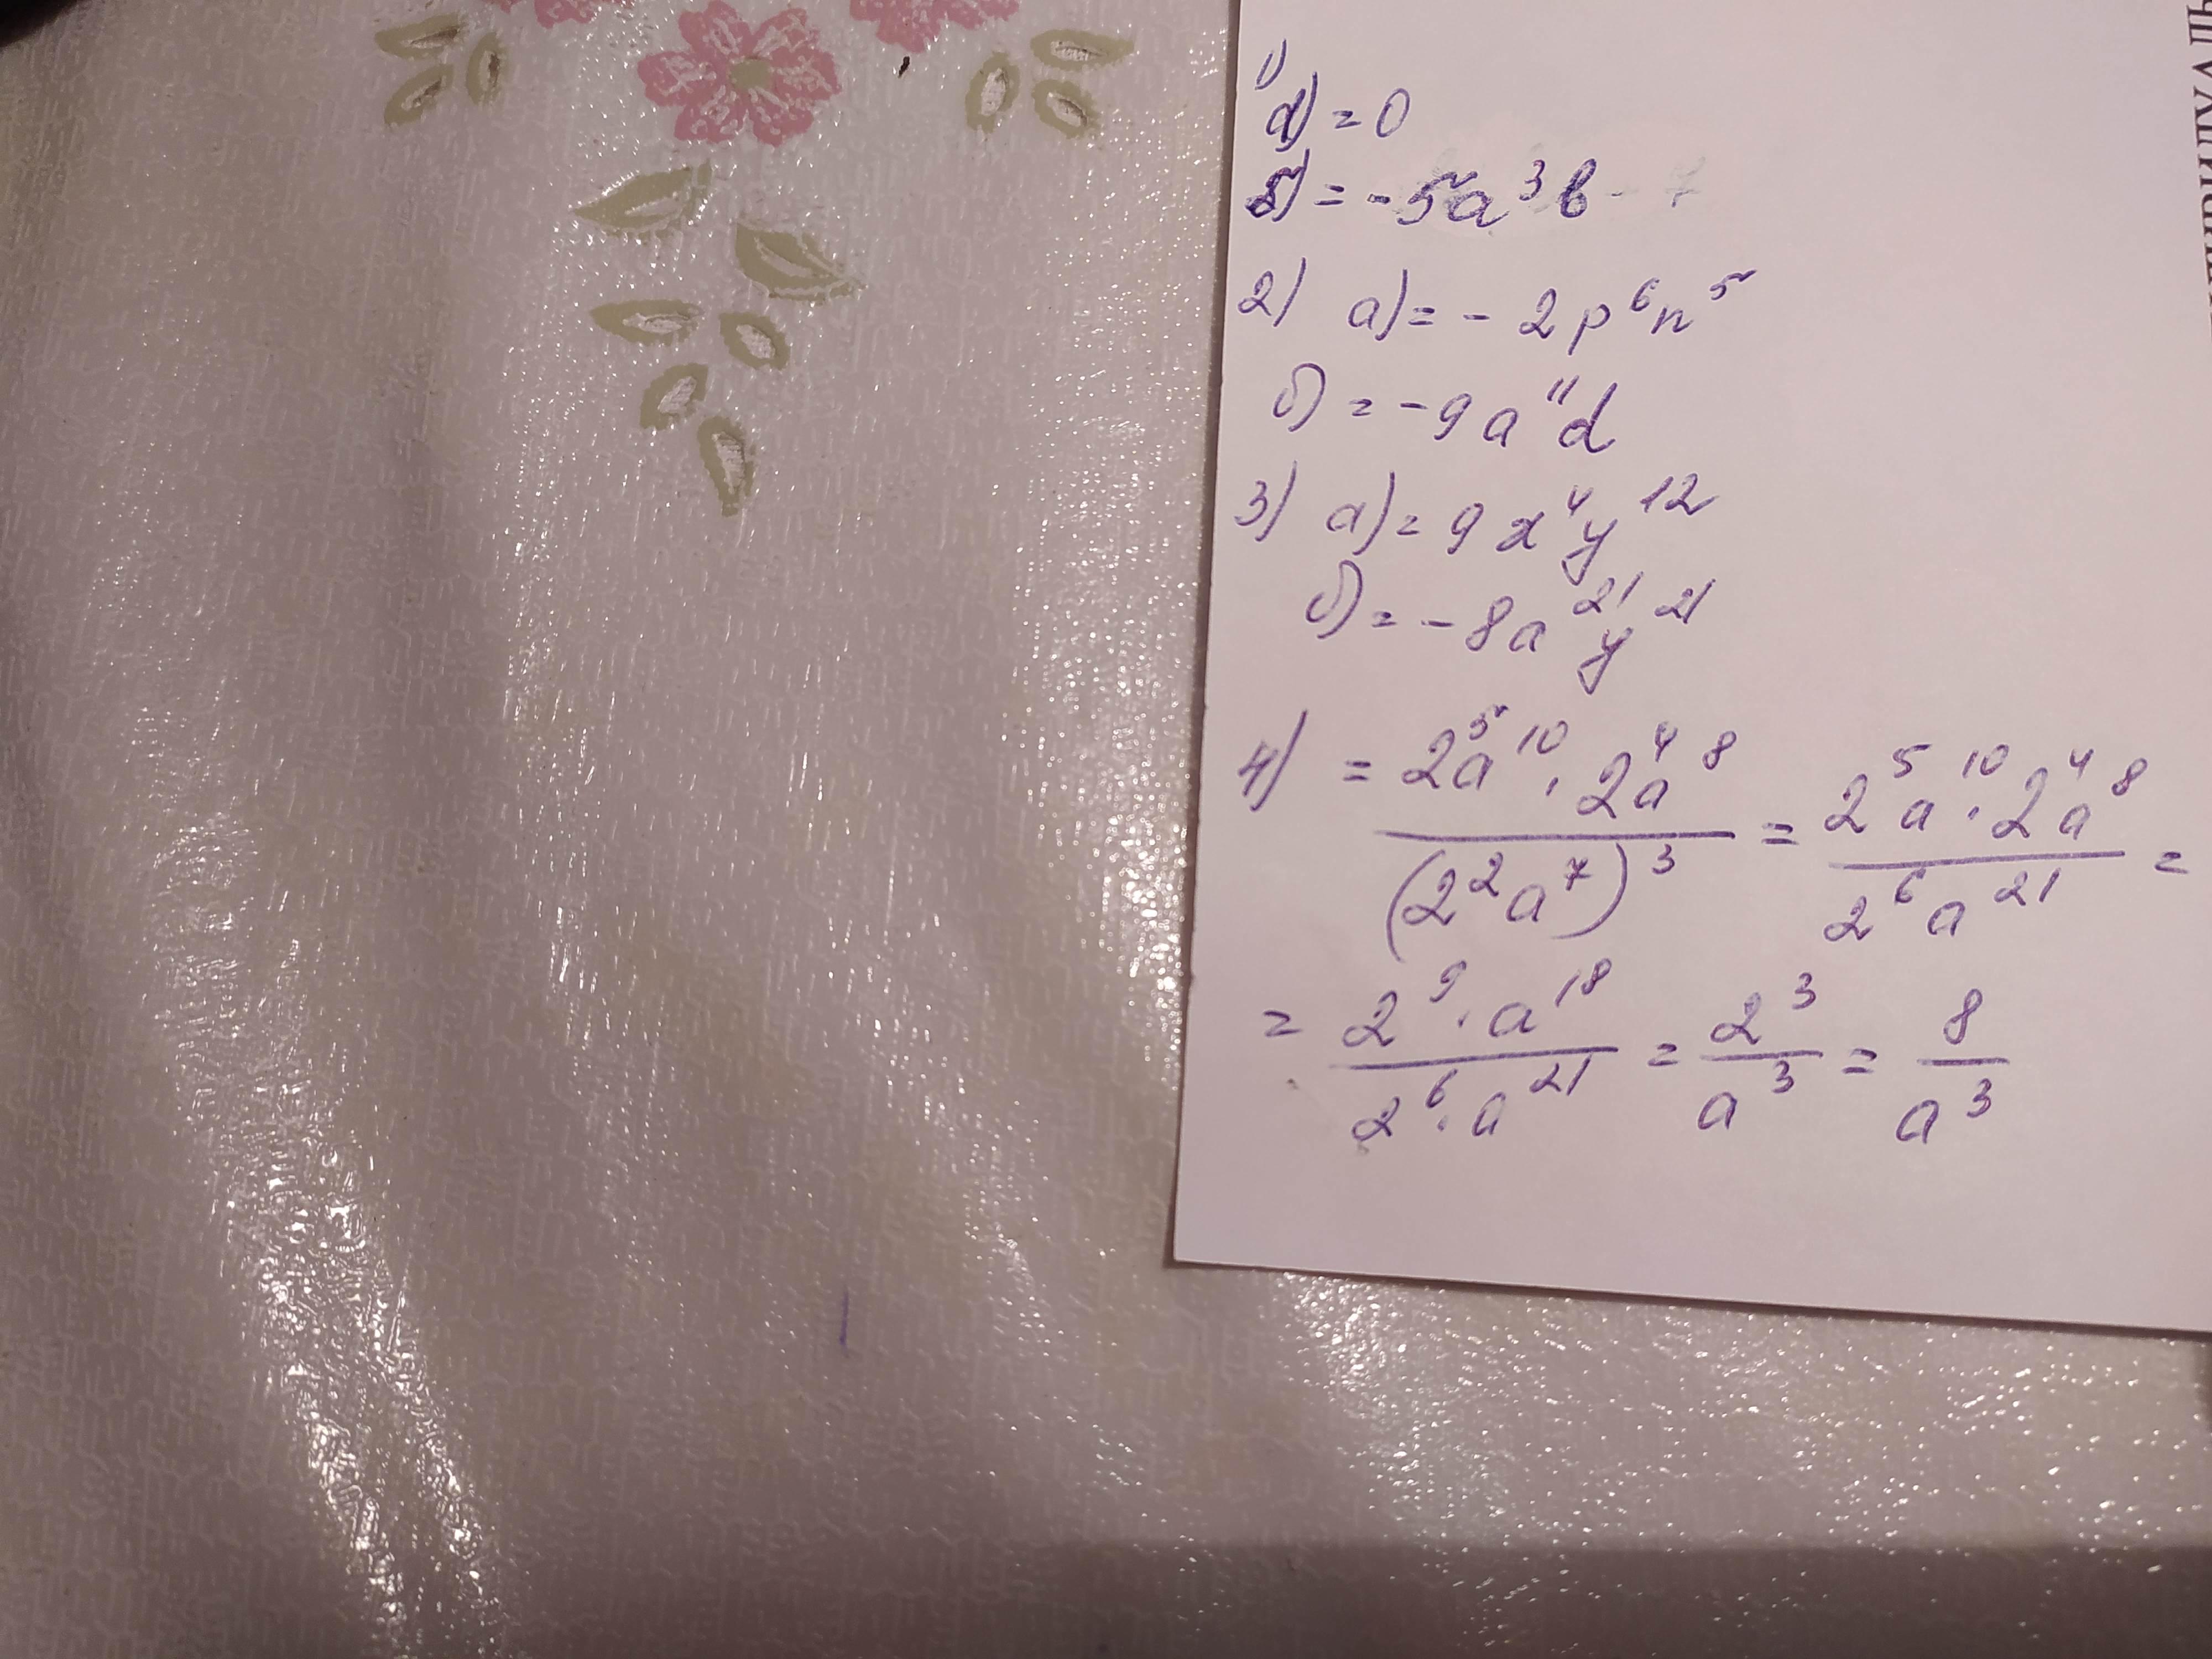 1)
а) = 0
б) = -5a³b - 7
2) a) = - 2p⁶n⁵
б) = -9a¹¹d
3) a) = 9x⁴y¹²
б) = -8a²¹y²¹
4) = 2⁵a¹⁰ · 2⁴a⁸ / (2²a⁷)³ = 2⁵a¹⁰ · 2⁴a⁸ / 2⁶a²¹ =
= 2⁹ · a¹⁸ / 2⁶ · a²¹ = 2³ / a³ = 8 / a³